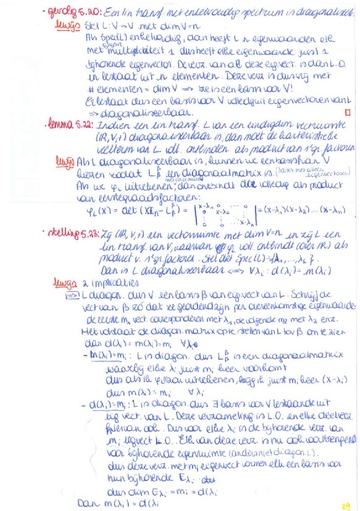 • gevolg 5.20: Een lin. transf. met enkelvoudig spectrum is diagonaliseerb.
bewijs Stel L: V → V met dim V = n.
Als Spec(L) enkelvoudig, dan heeft L n eigenwaarden elk
met multipliciteit 1 dus heeft elke eigenwaarde juist 1
bijhorende eigenvector. De verz. van al deze eigvect is dan L.O.
en bestaat uit n elementen. Deze verz is dus vrij met
# elementen = dim V ⟹ ze is een basis voor V!
Er bestaat dus een basis voor V volledig uit eigenvectoren van L
⟹ diagonaliseerbaar.
• lemma 5.22: Indien een lin. transf. L van een eindigdim vectorruimte
(ℝ,V,+) diagonaliseerbaar is, dan moet de karakteristieke
veelterm van L voll. ontbinden als product van 1e gr factoren.
bewijs Als L diagonaliseerbaar is, kunnen we een basis β van V
kiezen zodat L een diagonaalmatrix is
Als we φ uitrekenen, dan ontbindt die volledig als product
van eerstegraadsfactoren:
φ_L(x) = det(xI_n − L) = = (x−λ₁)(x−λ₂)...(x−λₙ)
• stelling 5.23: Zij (ℝ,V,+) een vectorruimte met dim V = n en zij L een
lin transf van V, waarvan φ_L voll ontbindt (over ℝ) als
product v. 1e gr factoren. Stel dat Spec(L) =
Dan is L diagonaliseerbaar ⟺ ∀λᵢ: d(λᵢ) = m(λᵢ)
bewijs 2 implicaties
⟹ L diagon. dus V een basis β van eigvect van L. Schrijf de
vect van β zó dat ze geordend zijn per overeenkomstige eigenwaarde
de eerste m₁ vect corresponderen met λ₁, de volgende m₂ met λ₂ enz.
Het volstaat de diagon matrix op te stellen van L tov β om te zien
dan d(λᵢ) = m(λᵢ) = mᵢ ∀λᵢ
- m(λᵢ) = mᵢ: L is diagon. dus L is een diagonaalmatrix
waarbij elke λᵢ juist mᵢ keer voorkomt
dus als ik φ_L kan uitrekenen, krijg ik juist mᵢ keer (x−λᵢ)
dus m(λᵢ) = mᵢ ∀λᵢ
- d(λᵢ) = mᵢ: L is diagon. dus ∃ basis voor V bestaande uit
eig.vect. van L. Deze verzameling is L.O. en elke deelverz
hiervan ook. Dus voor elke λᵢ is de bijhorende verz. van
mᵢ eigvect L.O. Elk van deze verz. is nu ook voortbrengend
voor bijhorende eigenruimte (anders niet diagon.).
dus deze verz. met mᵢ eigenvect vormen elk een basis voor
hun bijhorende E_λᵢ
dus dim E_λᵢ = mᵢ = d(λᵢ)
Dan m(λᵢ) = d(λᵢ)
29